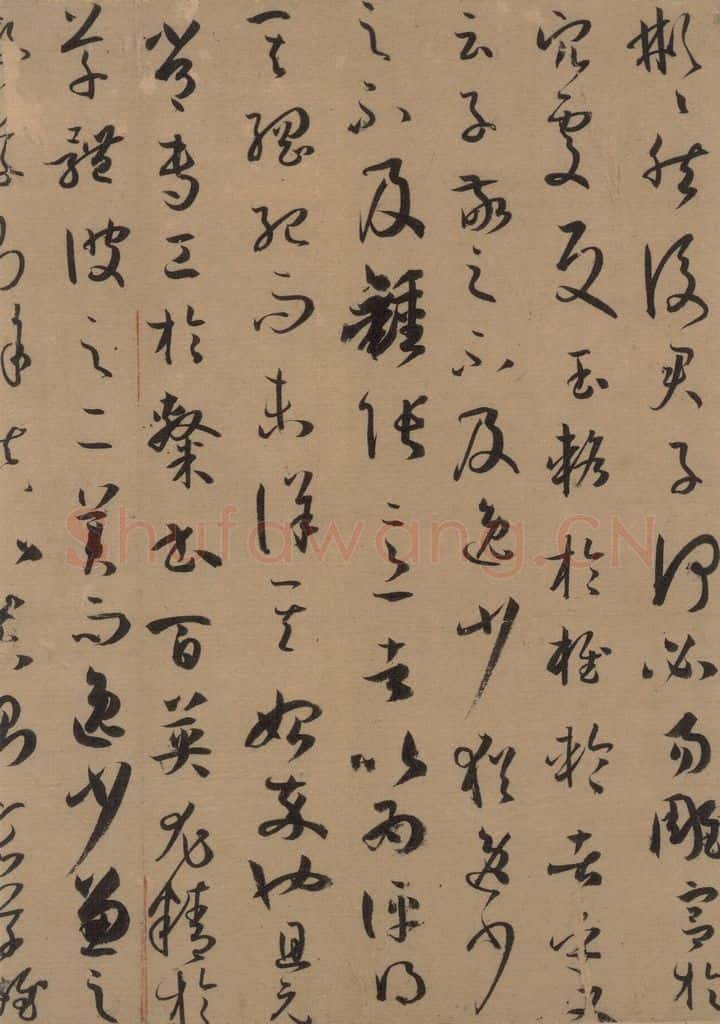 彬彬然後君子何必易雕宮於
穴處反玉輅於椎輪者乎又
云子敬之不及逸少猶逸少
之不及鍾張意者以為評得
其綱紀而未詳其始卒也且元
常專工於隸書百英尤精於
草體彼之二美而逸少兼之
Shufawang.CN